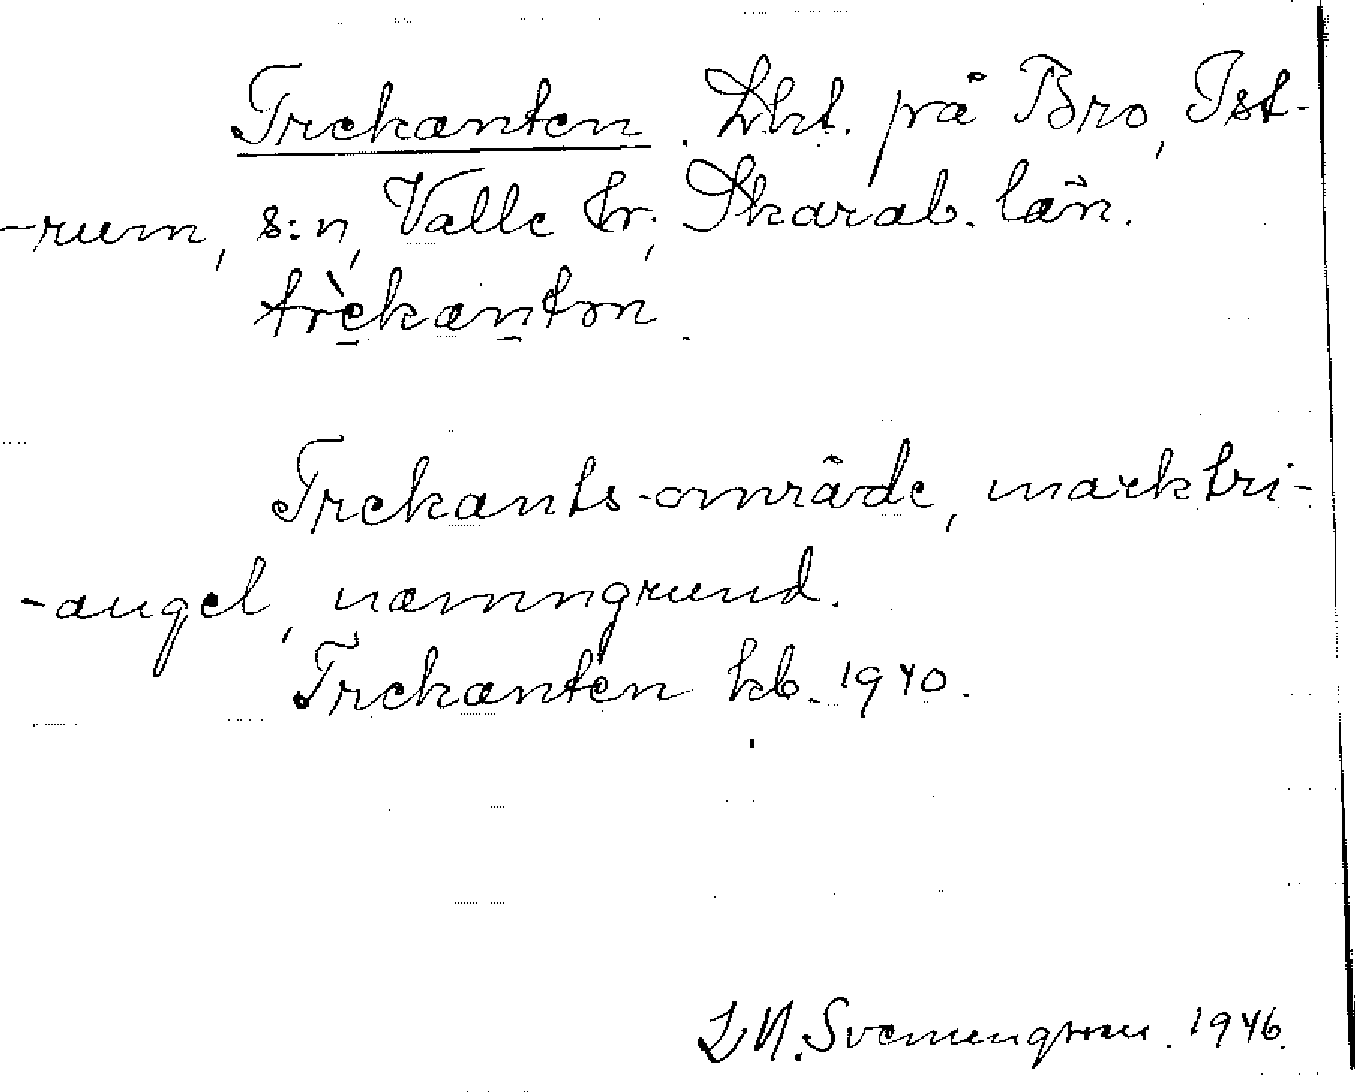 Trekanten. Lht. på Bro, Ist-
-rum, s:n, Valle hr; Skarab. län.
trèkantən.
Trekants-område, marktri-
-angel, namngrund.
Trekanten kb. 1940.
1946.